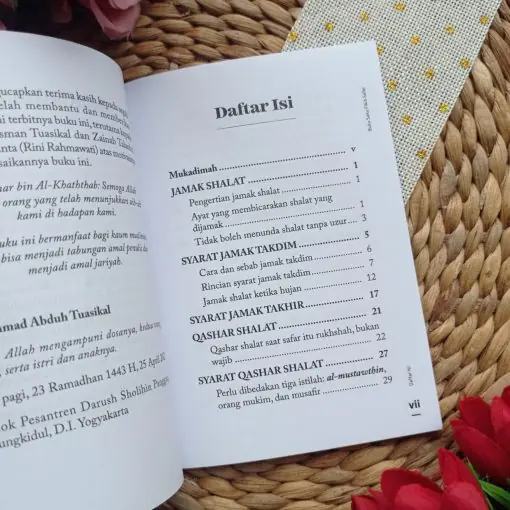 ucapkan terima kasih kepada
elah membantu dan
i terbitnya buku ini, terutama
sman Tuasikal dan Zainab
nta (Rini Rahmawati) atas
saikannya buku ini.
ar bin Al-Khaththab: Semoga Allah
orang yang telah menunjukkan
kami di hadapan kami.
uku ini bermanfaat bagi kaum
bisa menjadi tabungan amal
menjadi amal jariyah.
mad Abduh Tuasikal
Allah mengampuni dosanya,
, serta istri dan anaknya.
pagi, 23 Ramadhan 1443 H, 25 April
ok Pesantren Darush Sholihin
ungkidul, D.I. Yogyakarta
Daftar Isi
Mukadimah v
JAMAK SHALAT 1
Pengertian jamak shalat 1
Ayat yang membicarakan shalat yang
dijamak 1
Tidak boleh menunda shalat tanpa uzur 3
SYARAT JAMAK TAKDIM 5
Cara dan sebab jamak takdim 6
Rincian syarat jamak takdim 7
Jamak shalat ketika hujan 12
SYARAT JAMAK TAKHIR 17
QASHAR SHALAT 21
Qashar shalat saat safar itu rukhshah, bukan
wajib 22
SYARAT QASHAR SHALAT 27
Perlu dibedakan tiga istilah: al-mustawthin,
orang mukim, dan musafir 29
Daftar Isi
vii